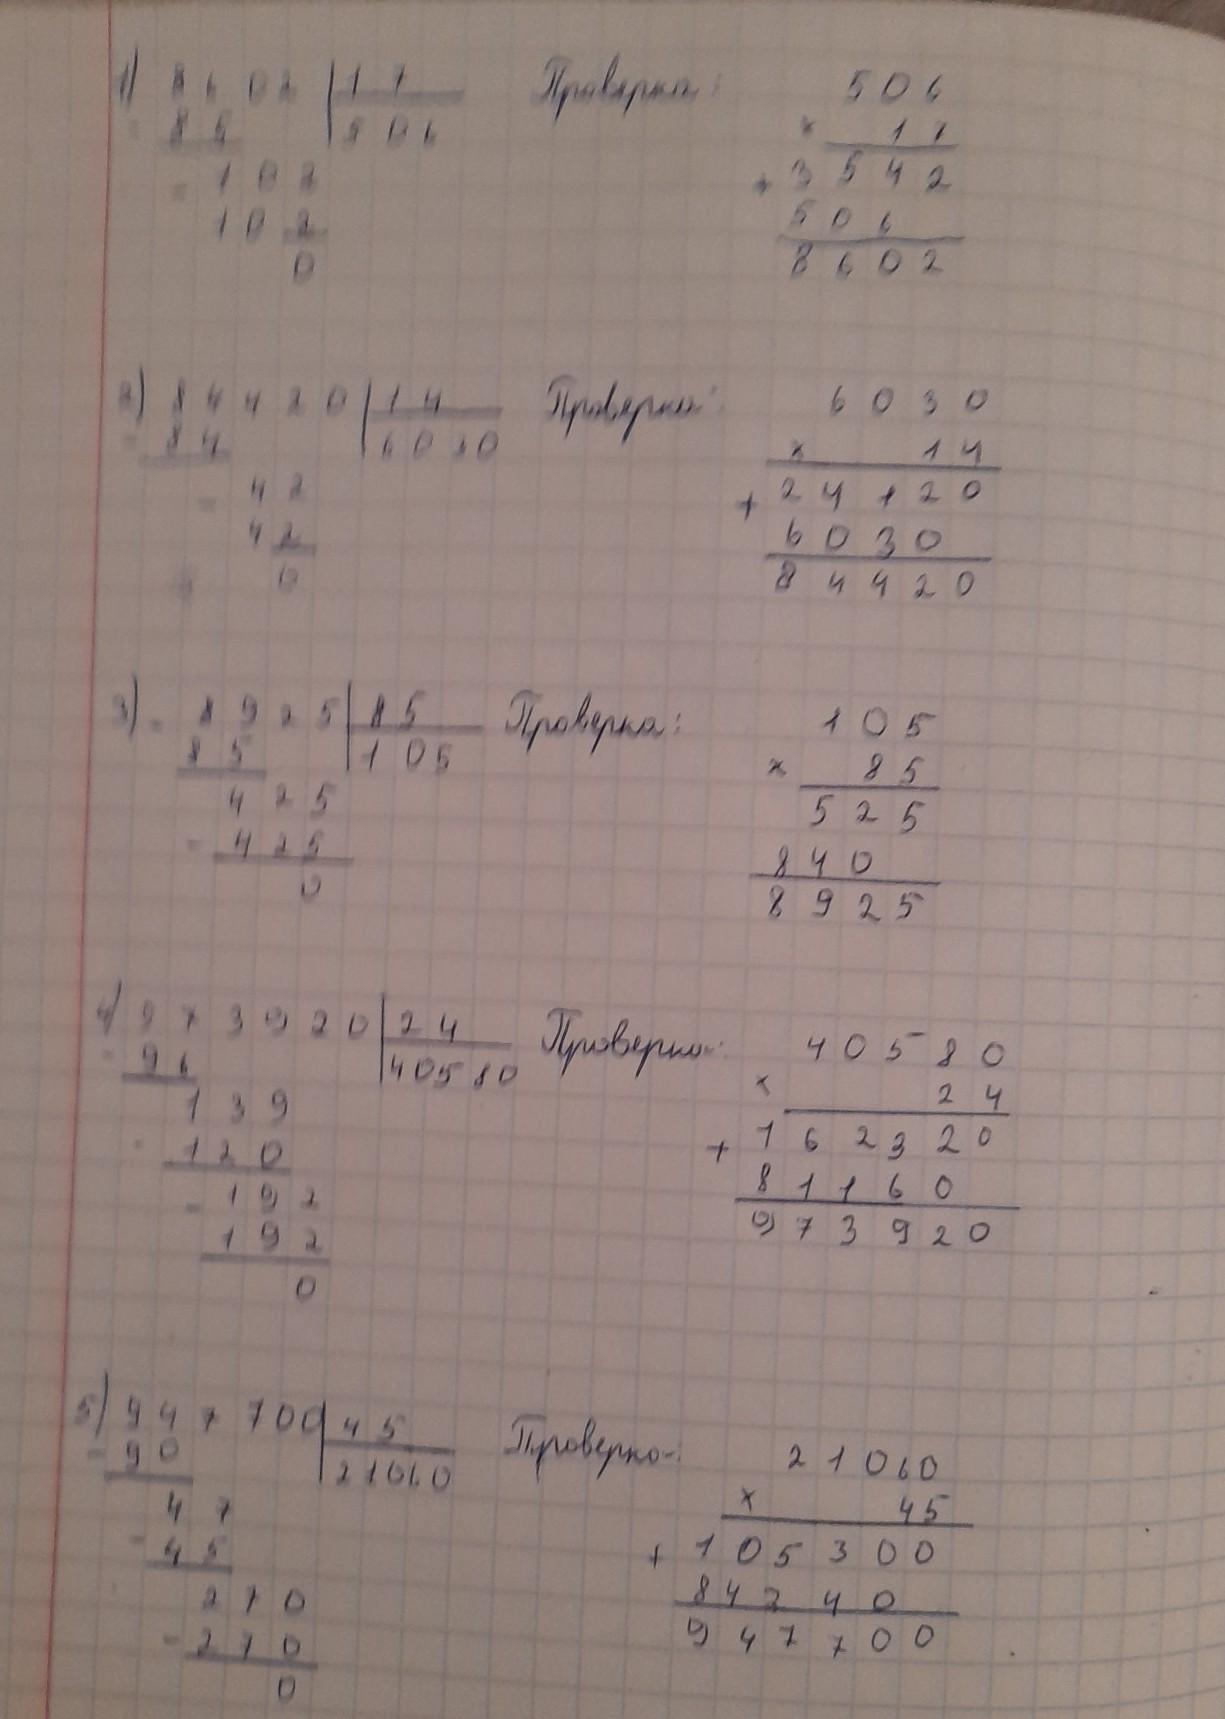 1) 8602 | 17 Проверка: 506
- 85 | 506 × 17
- 102 + 3542
102 506
0 8602
2) 84420 | 14 Проверка: 6030
- 84 | 6030 × 14
- 42 + 24120
42 6030
0 84420
3) - 8925 | 85 Проверка: 105
85 | 105 × 85
425 525
- 425 840
0 8925
4) 973920 | 24 Проверка: 40580
- 96 | 40580 × 24
139 + 162320
- 120 81160
- 192 973920
192
0
5) 947700 | 45 Проверка: 21060
- 90 | 21060 × 45
47 + 105300
- 45 84240
270 947700
- 270
0